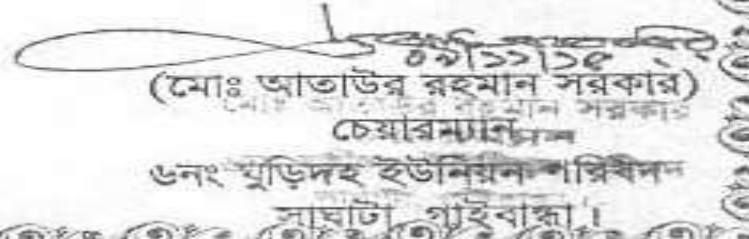 ০৯/১১/১৫
(মোঃ আতাউর রহমান সরকার)
মোঃ আতাউর রহমান সরকার
চেয়ারম্যান
৬নং ঘুড়িদহ ইউনিয়ন পরিষদ
সাঘাটা, গাইবান্ধা।